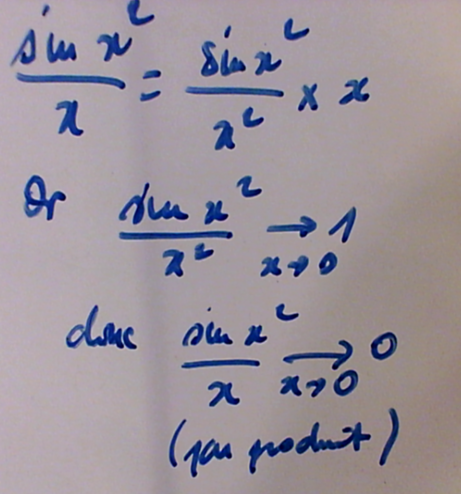 sin x² / x = sin x² / x² × x
Or sin x² / x² → 1
x→0
donc sin x² / x → 0
x→0
(par produit)